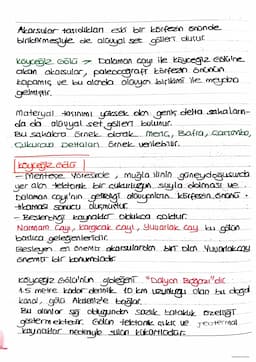 Akarsular taşıdıkları eski bir körfezin önünde
biriktirmesiyle de alüvyal set gölleri olur.
Köyceğiz Gölü → Dalaman çayı ile Köyceğiz Gölüne
akan akarsular, paleocoğrafi körfezin önünün
kapamış ve bu alanda alüvyon birikimi ile meydana
gelmiştir.
Materyal taşınımı yüksek olan geniş delta sahaların-
da da alüvyal set gölleri bulunur.
Bu sahalara örnek olarak Meriç, Bafra, Çarşamba,
Çukurova Deltaları örnek verilebilir.
Köyceğiz Gölü
- Menteşe Yöresinde, Muğla ilinin güneydoğusunda
yer alan tektonik bir çukurluğun suyla dolması ve
Dalaman çayı'nın getirdiği alüvyonların körfezin önünü
tıkaması sonucu oluşmuştur.
- Beslendiği kaynaklar oldukça çoktur.
Namnam Çayı, Kargıcak Çayı, Yuvarlak Çay bu gölün
başlıca gelegenleridir.
Besleyen en önemli akarsulardan biri olan Yuvarlakçay
önemli bir konumdadır.
Köyceğiz Gölü'nün gideğeni "Dalyan Boğazı"dır.
1.5 metre kadar derinlik 10 km uzunluğu olan bu doğal
kanal, gölü Akdeniz'e bağlar.
Bu alanlar sığ olduğundan sazlık bataklık özelliği
göstermektedir. Gölün tektonik çukur ve geotermal
kaynaklar nedeniyle suları kükürtlüdür.